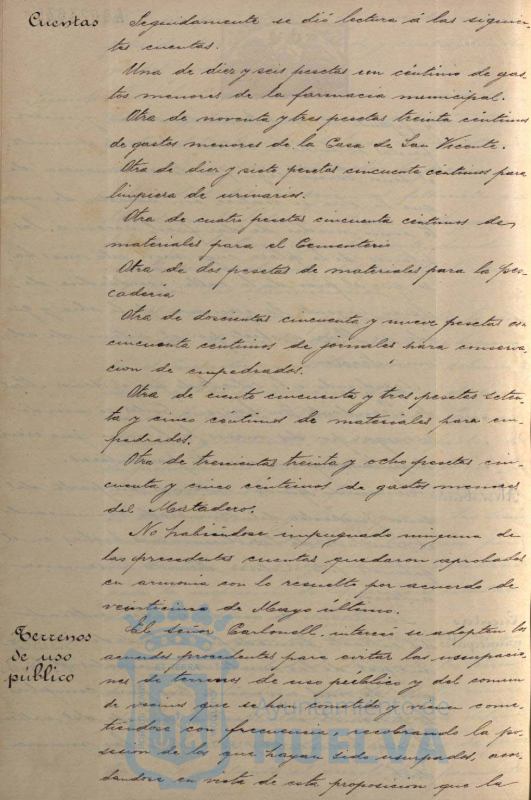 Cuentas
Seguidamente se dió lectura á las siguien-
tes cuentas.
Una de diez y seis pesetas un céntimo de gas-
tos menores de la farmacia municipal.
Otra de noventa y tres pesetas treinta céntimos
de gastos menores de la Casa de San Vicente.
Otra de diez y siete pesetas cincuenta céntimos para
limpieza de urinarios.
Otra de cuatro pesetas cincuenta céntimos de
materiales para el Cementerio
Otra de dos pesetas de materiales para la pes-
cadería
Otra de doscientas cincuenta y nueve pesetas
cincuenta céntimos de jornales para conserva-
cion de empedrados.
Otra de ciento cincuenta y tres pesetas seten-
ta y cinco céntimos de materiales para em-
pedrados.
Otra de trescientas treinta y ocho pesetas cin-
cuenta y cinco céntimos de gastos menores
del Matadero.
No habiéndose impugnado ninguna de
las precedentes cuentas quedaron aprobadas
en armonia con lo resuelto por acuerdo de
veinticinco de Mayo último.
Terrenos
de uso
público
El señor Carbonell interesó se adopten los
acuerdos procedentes para evitar las usurpacio-
nes de terrenos de uso público y del comun
de vecinos que se han cometido y vienen come-
tiéndose con frecuencia, recobrando la po-
sesión de los que hayan sido usurpados, acor-
dándose en vista de esta proposicion que la
Ayuntamiento de
HUELVA